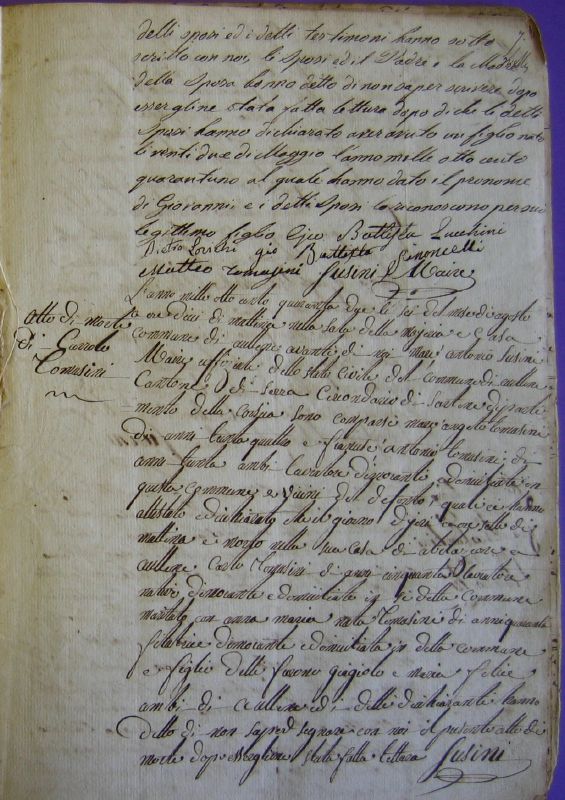 7.
delli sposi ed i detti testimoni hanno sotto
scritto con noi, li Sposi ed il Padre e la Madre
della Sposa hanno detto di non saper scrivere dopo
essergliene stata fatta lettura dopo di che li detti
Sposi hanno dichiarato aver avuto un figlio nato
li venti due di Maggio l'anno mille otto cento
quarantuno al quale hanno dato il pronome
di Giovanni e i detti Sposi lo riconoscono per suo
legittimo figlio Gio Battista Lucchini
Pietro gio Battista Simoncelli
Matteo Tomasini Susini Maire
Atto di morte
di Carrolo
Tomasini
L'anno mille otto cento quaranta due li sei del mese di agosto
a ore dieci di mattina nella sala della e Casa
Commune di aullene avanti di noi antonio Susini
Maire uffiziale dello stato Civile del Commune di aullene
Cantone di Serra Circondario di Sartene diparti
mento della Corsica sono comparsi angelo Tomasini
di anni trenta quattro e antonio Tomasini di
anni trenta ambi Lavoratore dimoranti e domiciliati in
questo Commune e vicini del defonto, quali ci hanno
attestato e dichiarato che il giorno d'jeri a ore sette di
mattina è morto nella sua Casa di abitazione a
aullene Carlo Tomasini di anni cinquanta Lavoratore
nativo, dimorante e domiciliato in detta Commune
maritato con anna maria nata Tomasini di anni quaranta
filatrice dimorante e domiciliata in detto commune
e figlio delli furono e maria Felice
ambi di aullene ed i detti dichiaranti hanno
detto di non saper segnare con noi il presente atto di
morte dopo essergliene stata fatta lettura Susini